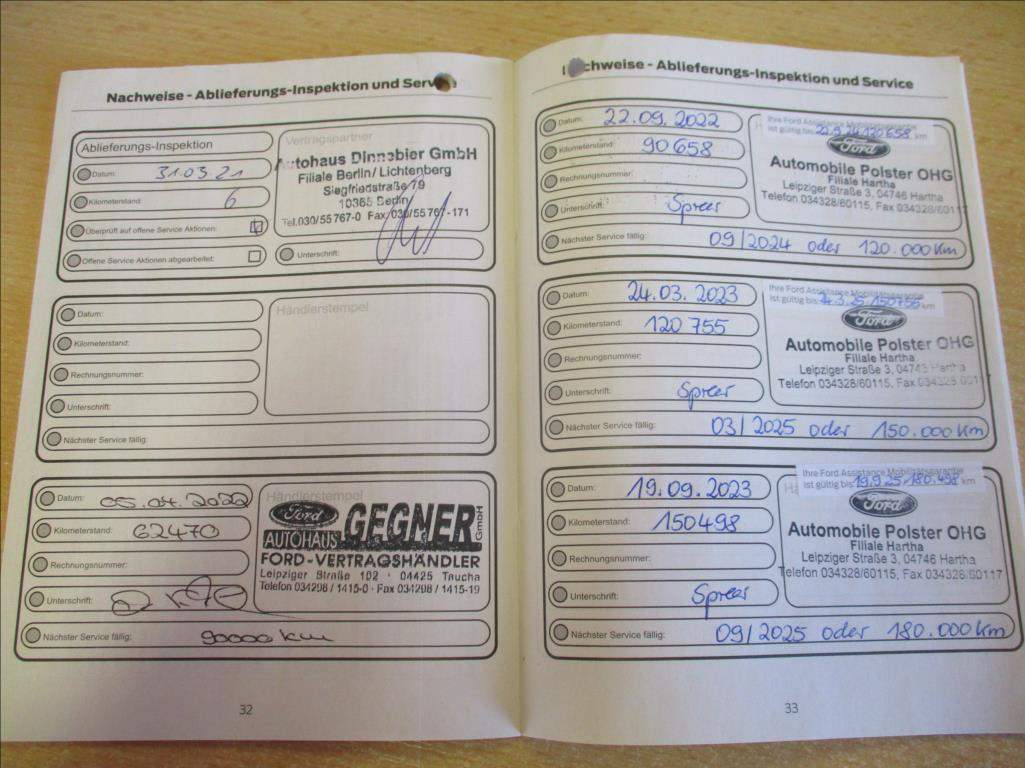 Nachweise - Ablieferungs-Inspektion und Service
Ablieferungs-Inspektion
Datum: 31.03.21
Kilometerstand: 6
Überprüft auf offene Service Aktionen:
Offene Service Aktionen abgearbeitet:
Vertragspartner
Autohaus Dinnebier GmbH
Filiale Berlin/Lichtenberg
Siegfriedstraße 79
10365 Berlin
Tel.030/55767-0 Fax:030/55767-171
Unterschrift:
Datum:
Kilometerstand:
Rechnungsnummer:
Unterschrift:
Nächster Service fällig:
Händlerstempel
Datum: 05.04.2022
Kilometerstand: 62470
Rechnungsnummer:
Unterschrift:
Nächster Service fällig: 90000 km
Händlerstempel
Ford
AUTOHAUS GEGNER GmbH
FORD-VERTRAGSHÄNDLER
Leipziger Straße 102 · 04425 Taucha
Telefon 034298 / 1415-0 · Fax 034298 / 1415-19
32
Nachweise - Ablieferungs-Inspektion und Service
Datum: 22.09.2022
Kilometerstand: 90658
Rechnungsnummer:
Unterschrift:
Nächster Service fällig: 09/2024 oder 120.000 Km
Ihre Ford Assistance Mobilitätsgarantie
ist gültig bis: 22.9.24 120658 km
Ford
Automobile Polster OHG
Filiale Hartha
Leipziger Straße 3, 04746 Hartha
Telefon 034328/60115, Fax 034328/60117
Datum: 24.03.2023
Kilometerstand: 120755
Rechnungsnummer:
Unterschrift:
Nächster Service fällig: 03/2025 oder 150.000 Km
Ihre Ford Assistance Mobilitätsgarantie
ist gültig bis: 150755 km
Ford
Automobile Polster OHG
Filiale Hartha
Leipziger Straße 3, 04746 Hartha
Telefon 034328/60115, Fax 034328 60117
Datum: 19.09.2023
Kilometerstand: 150498
Rechnungsnummer:
Unterschrift:
Nächster Service fällig: 09/2025 oder 180.000 Km
Ihre Ford Assistance Mobilitätsgarantie
ist gültig bis: 19.9.25 180.498 km
Ford
Automobile Polster OHG
Filiale Hartha
Leipziger Straße 3, 04746 Hartha
Telefon 034328/60115, Fax 034328/60117
33